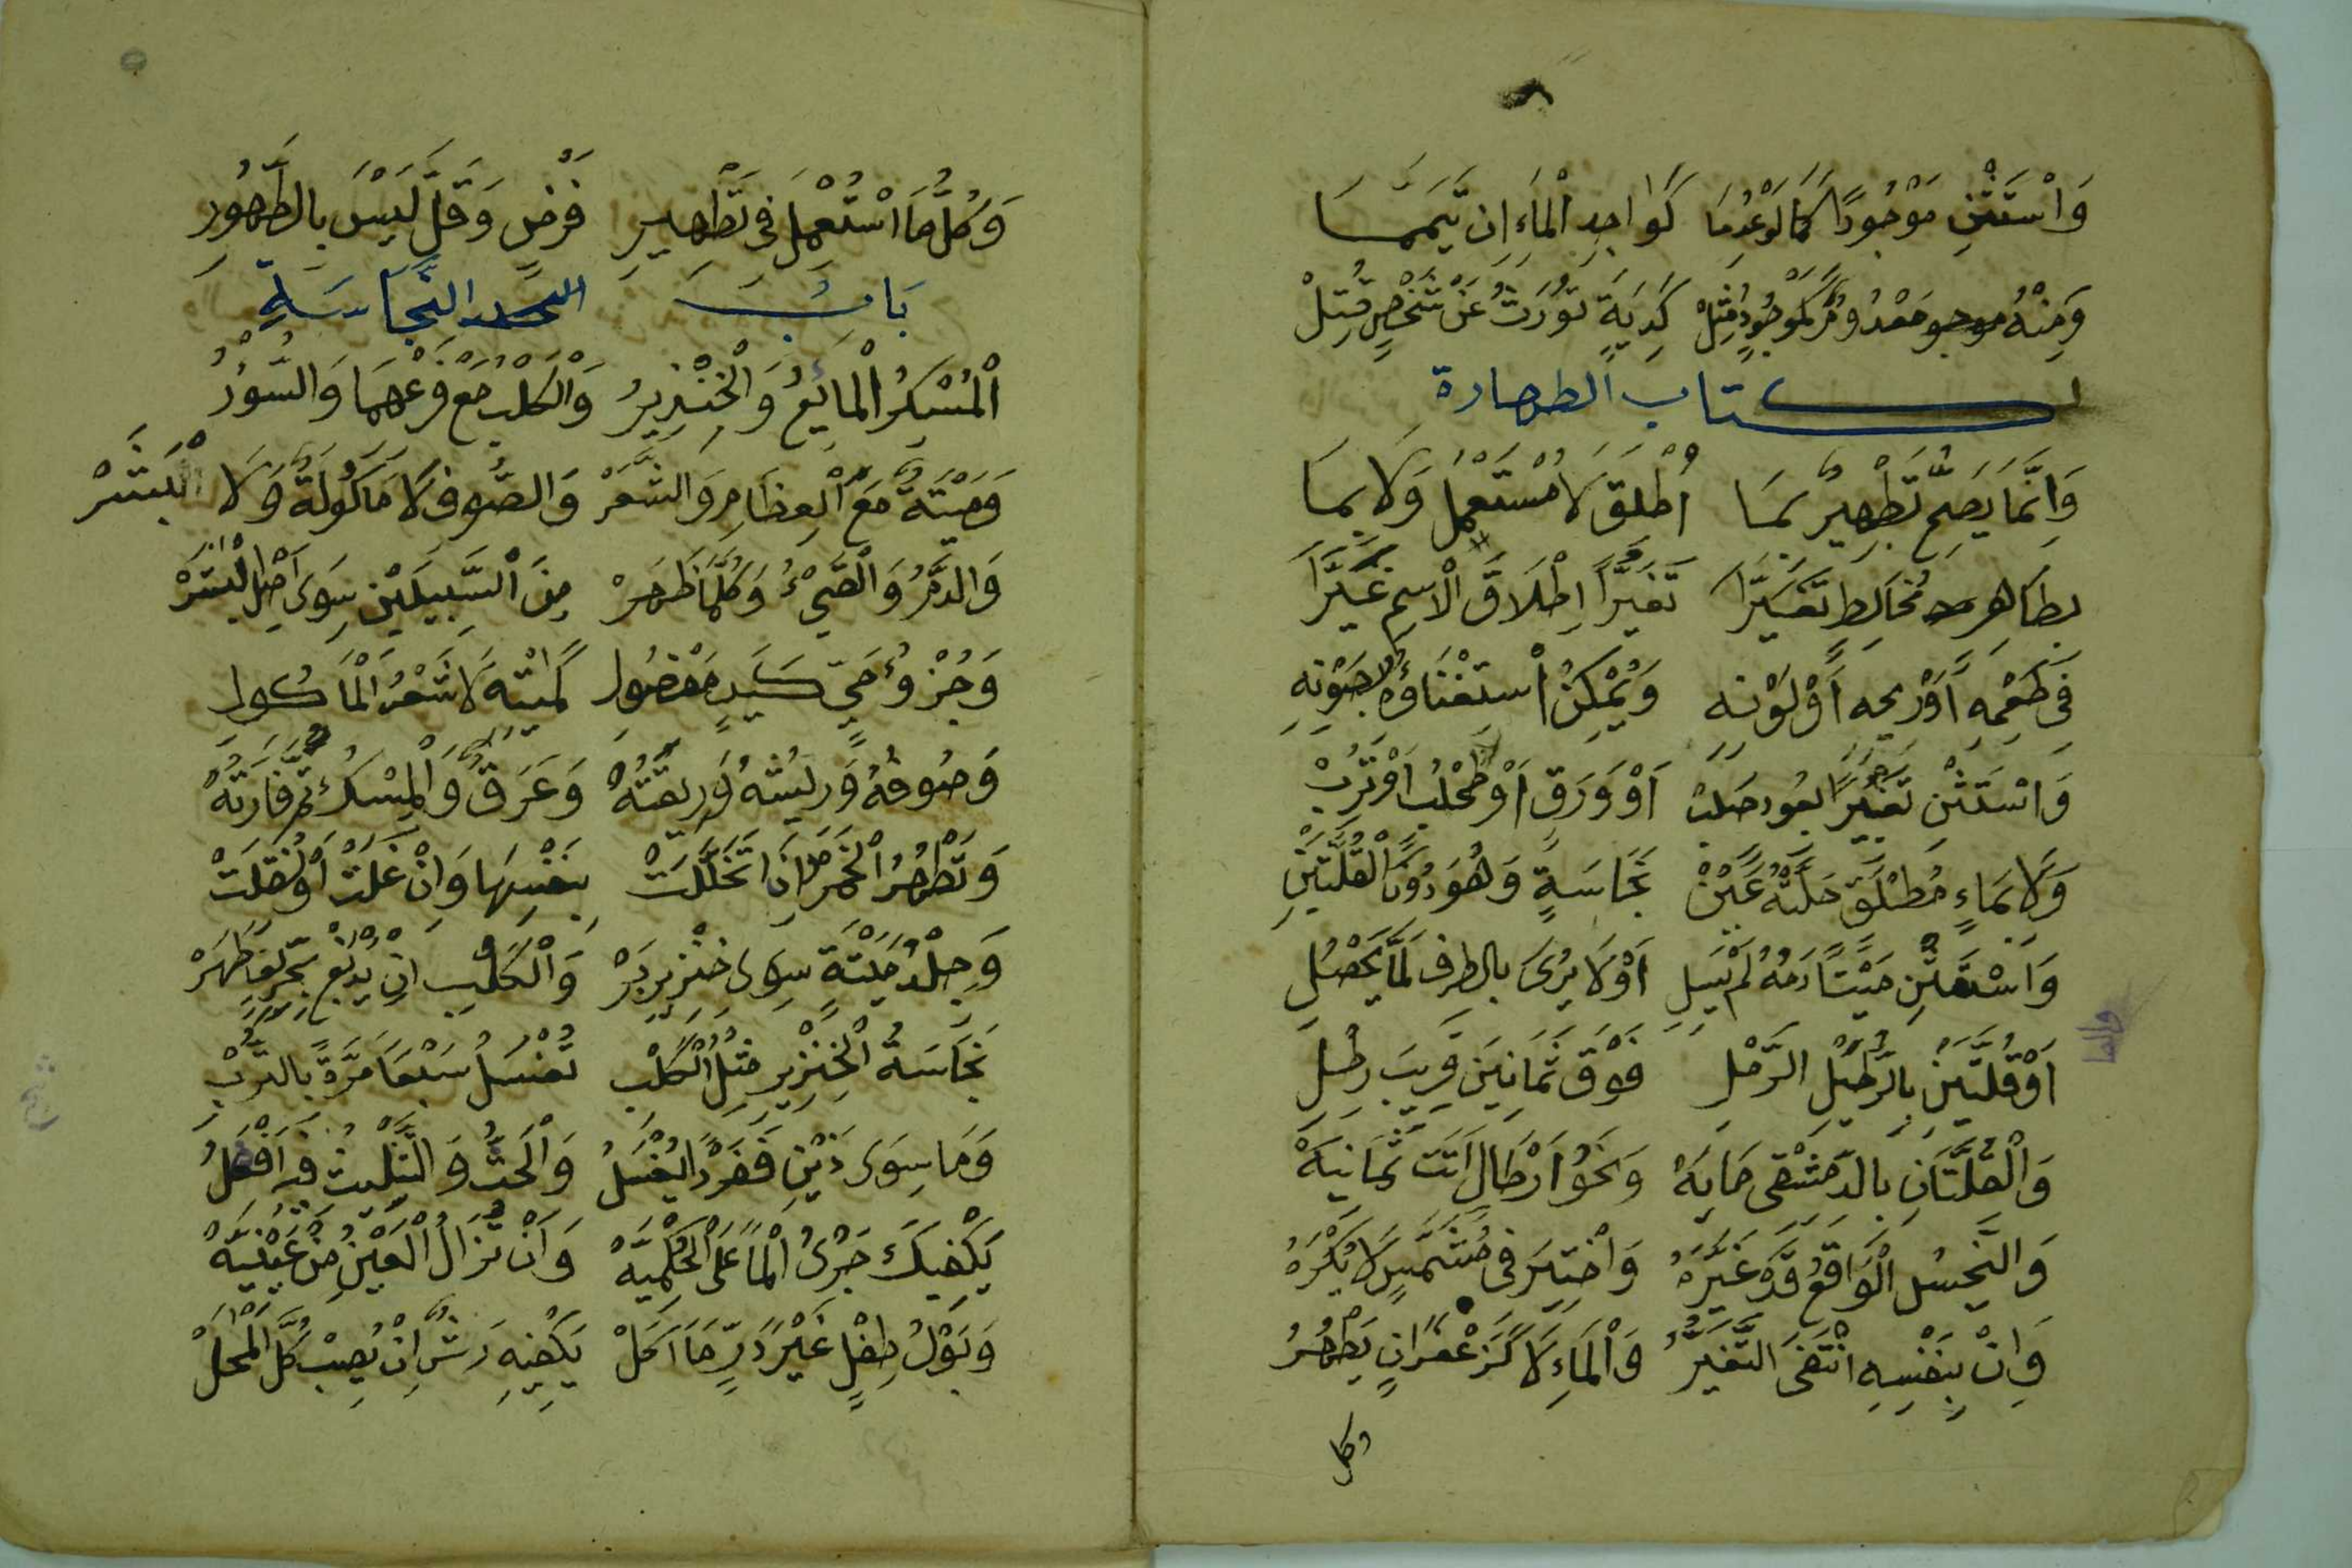 وَاسْتَثْنِ مَوْجُودًا كَمَا لَوْ عُدِمَا كَوَاجِدِ الْمَاءِ إِنْ تَيَمَّمَا
وَمِنْهُ مَعْدُومٌ كَمَوْجُودٍ مُثِلْ كَدِيَةٍ تُورَثُ عَنْ شَخْصٍ قُتِلْ
كتاب الطهارة
وَإِنَّمَا يَصِحُّ تَطْهِيرٌ بِمَا أُطْلِقَ لَا مُسْتَعْمَلٍ وَلَا بِمَا
بِطَاهِرٍ مُخَالِطٍ تَغَيَّرَا تَغَيُّرًا إِطْلَاقَ الْاِسْمِ غَيَّرَا
فِي طَعْمِهِ أَوْ رِيحِهِ أَوْ لَوْنِهِ وَيُمْكِنُ اسْتِغْنَاؤُهُ بِصَوْنِهِ
وَاسْتَثْنِ تَغْيِيرًا بِعُودٍ صُلْبِ أَوْ وَرَقٍ أَوْ طُحْلُبٍ أَوْ تُرْبِ
وَلَا بِمَاءٍ مُطْلَقٍ حَلَّتْهُ عَيْنْ نَجَاسَةٍ وَهُوَ دُونَ الْقُلَّتَيْنْ
وَاسْتَثْنِ مَيْتًا دَمُهُ لَمْ يَسِلِ أَوْ لَا يُرَى بِالطَّرْفِ لَمَّا يَحْصُلِ
أَوْ قُلَّتَيْنِ بِالرُّطَيْلِ الرَّمْلِي فَوْقَ ثَمَانِينَ قَرِيبَ رِطْلِ
وَالْقُلَّتَانِ بِالدِّمَشْقِي مَايَهْ وَنَحْوُ أَرْطَالٍ أَتَتْ ثَمَانِيَهْ
وَالنَّجِسُ الْوَاقِعُ قَدْ غَيَّرَهُ وَاخْتِيرَ فِي مُشَمَّسٍ لَا يُكْرَهُ
وَإِنْ بِنَفْسِهِ انْتَفَى التَّغَيُّرُ وَالْمَاءِ لَا كَزَعْفَرَانٍ يَطْهُرُ
وكل
وَكُلُّ مَا اسْتُعْمِلَ فِي تَطْهِيرِ فَرْضٍ وَقَلَّ لَيْسَ بِالطَّهُورِ
بَابُ النَّجَاسَةِ
الْمُسْكِرُ الْمَائِعُ وَالْخِنْزِيرُ وَالْكَلْبُ مَعْ فَرْعِهِمَا وَالسُّورُ
وَمَيْتَةٌ مَعَ الْعِظَامِ وَالشَّعَرْ وَالصُّوفِ لَا مَاكُولَةٌ وَلَا الْبَشَرْ
وَالدَّمُ وَالْقَيْءُ وَكُلُّ مَا ظَهَرْ مِنَ السَّبِيلَيْنِ سِوَى أَصْلِ الْبَشَرْ
وَجُزْءُ حَيٍّ كَيَدٍ مَفْصُولِ كَمَيْتِهِ لَا شَعْرُ الْمَأْكُولِ
وَصُوفُهُ وَرِيشُهُ وَرِيقَتُهْ وَعَرَقٌ وَالْمِسْكُ ثُمَّ فَارَتُهْ
وَتَطْهُرُ الْخَمْرُ إِذَا تَخَلَّلَتْ بِنَفْسِهَا وَإِنْ غَلَتْ أَوْ نُقِلَتْ
وَجِلْدُ مَيْتَةٍ سِوَى خِنْزِيرِ بَرْ وَالْكَلْبِ إِنْ يُدْبَغْ بِحِرِّيفٍ طَهَرْ
نَجَاسَةُ الْخِنْزِيرِ مِثْلُ الْكَلْبِ تُغْسَلُ سَبْعًا مَرَّةً بِالتُّرْبِ
وَمَا سِوَى ذَيْنِ فَفَرْدًا يُغْسَلُ وَالْحَتُّ وَالتَّثْلِيثُ فِيهِ أَفْضَلُ
يَكْفِيكَ جَرْيُ الْمَا عَلَى الْحُكْمِيَّهْ وَأَنْ تُزَالَ الْعَيْنُ مِنْ عَيْنِيَّهْ
وَبَوْلُ طِفْلٍ غَيْرَ دَرٍّ مَا أَكَلْ يَكْفِيهِ رَشٌّ إِنْ يُصِبْ كُلَّ الْمَحَلْ